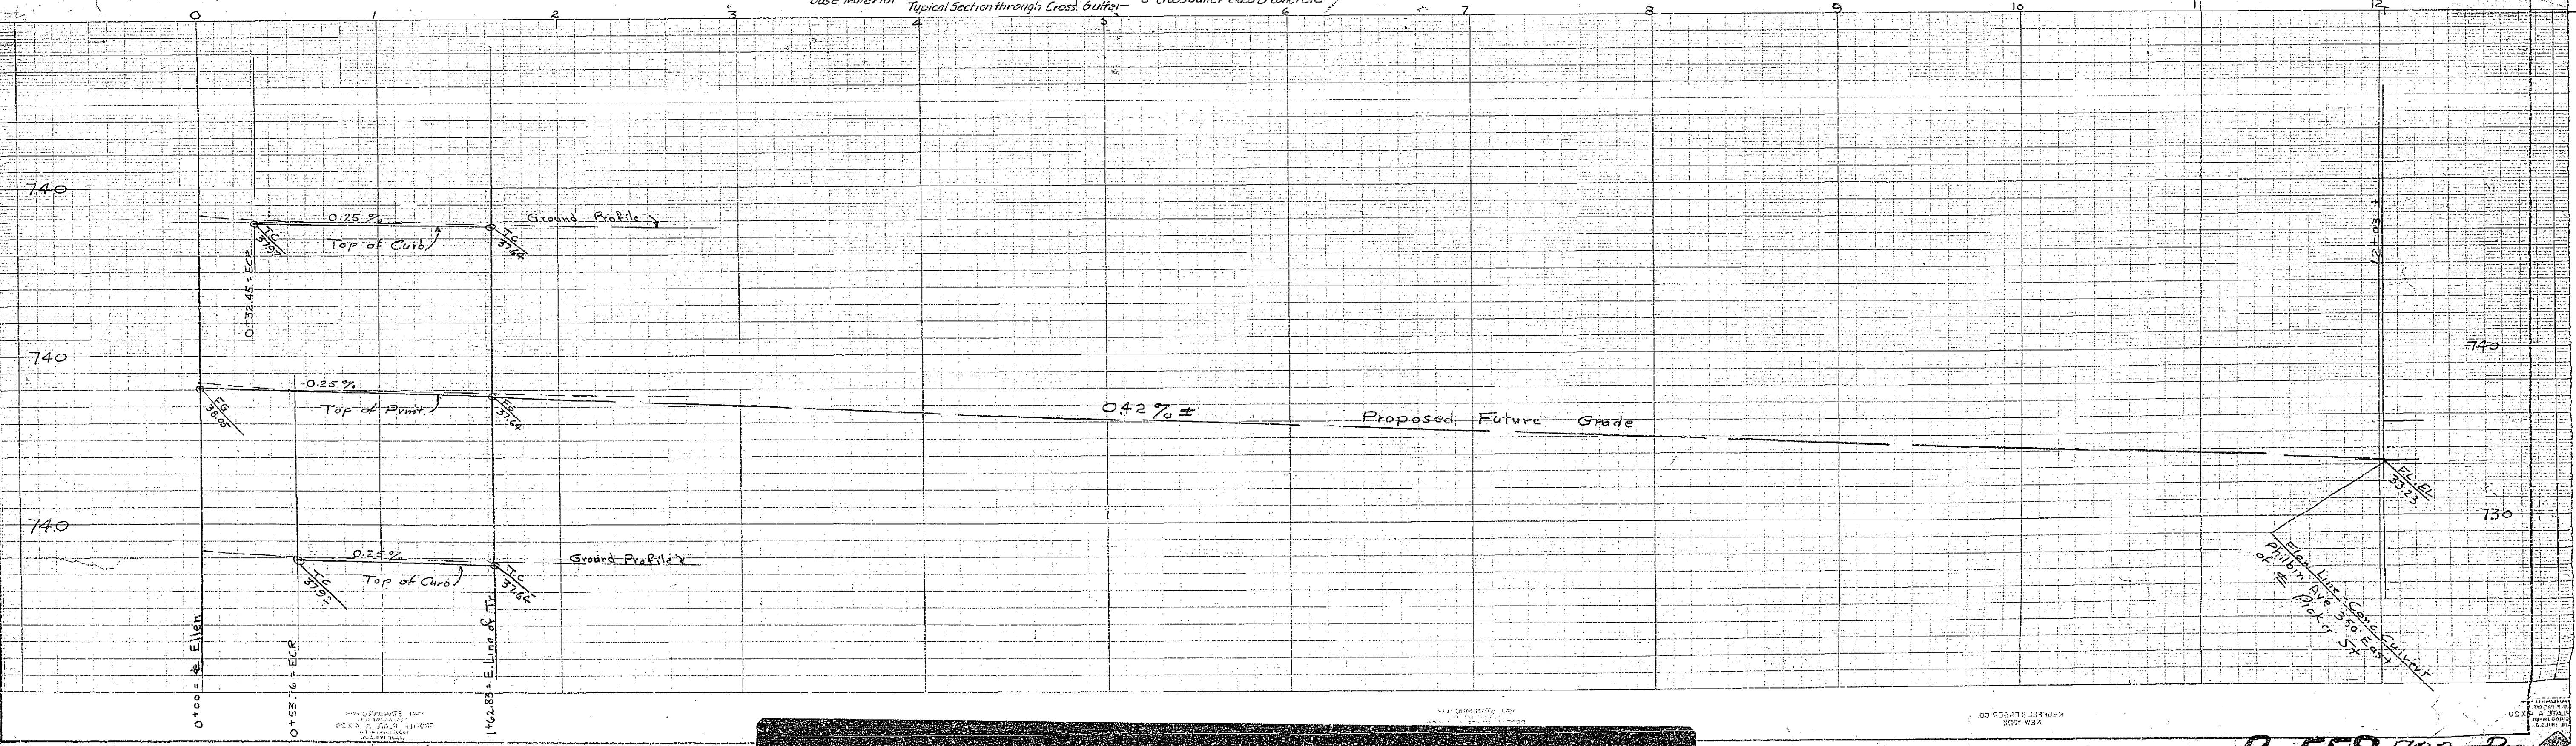 Typical Section through Cross Gutter
0 1 2 3 4 5 6 7 8 9 10 11 12
740
0.25 %
Ground Profile
Top of Curb
TC
37.97
TC
37.64
0+32.45 = ECR
12+03 ±
740
740
0.25 %
Top of Pvmt.
FG
38.05
FG
37.64
0.42 % ±
Proposed Future Grade
FL. EL
33.23
740
730
0.25 %
Ground Profile
Top of Curb
TC
37.92
TC
37.64
Flow Line - Conc Culvert
Philbin Ave 350' East
of ℄ Picker St
0+00 = ℄ Ellen
0+53.76 = ECR
1+62.83 = E. Line of Tr.
KEUFFEL & ESSER CO.
NEW YORK